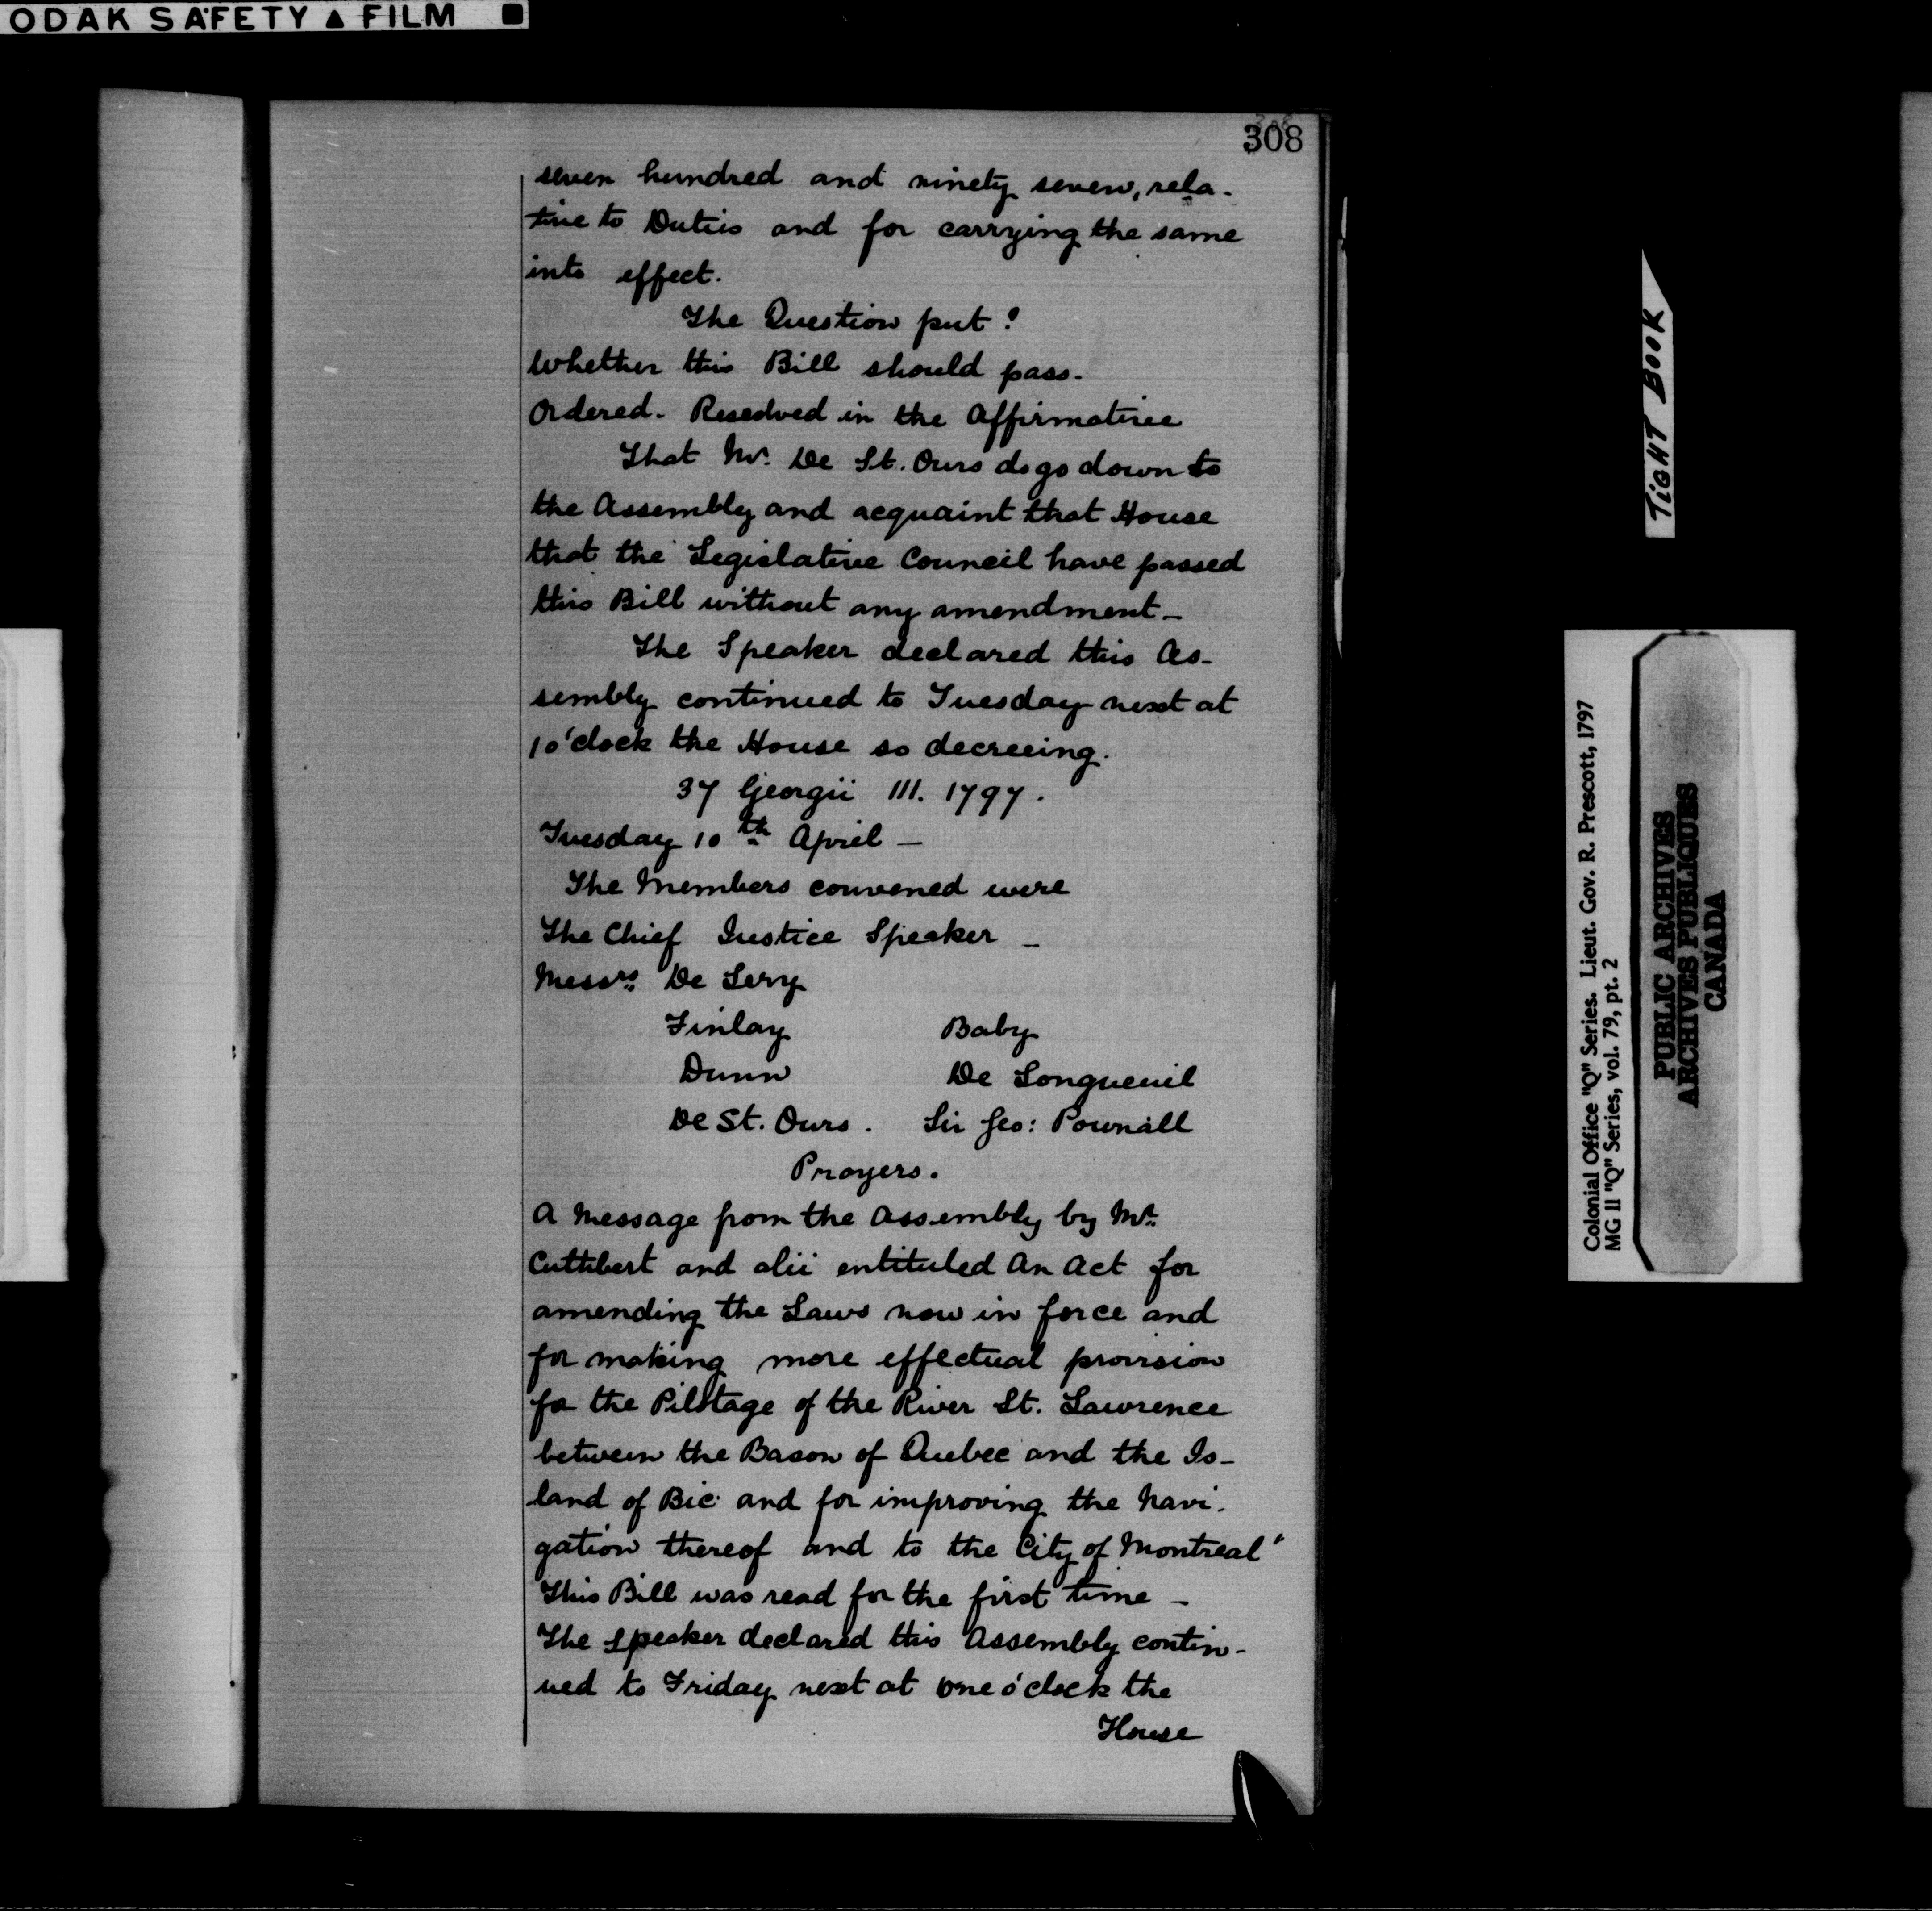 ODAK SAFETY ▲ FILM ■
308
seven hundred and ninety seven, rela-
tive to Duties and for carrying the same
into effect.
The Question put?
Whether this Bill should pass.
Ordered. Resolved in the Affirmative
That Mr. De St. Ours do go down to
the Assembly and acquaint that House
that the Legislative Council have passed
this Bill without any amendment -
The Speaker declared this As-
sembly continued to Tuesday next at
1 o'clock the House so decreeing.
37 Georgii III. 1797.
Tuesday 10th April -
The Members convened were
The Chief Justice Speaker -
Messrs De Lery
Finlay Baby
Dunn De Longueuil
De St. Ours. Sir Geo: Pownall
Prayers.
A Message from the Assembly by Mr.
Cuthbert and alii entituled An Act for
amending the Laws now in force and
for making more effectual provision
for the Pilotage of the River St. Lawrence
between the Bason of Quebec and the Is-
land of Bic and for improving the navi-
gation thereof and to the City of Montreal"
This Bill was read for the first time -
The Speaker declared this Assembly contin-
ued to Friday next at one o'clock the
House
TIGHT BOOK
Colonial Office "Q" Series. Lieut. Gov. R. Prescott, 1797
MG 11 "Q" Series, vol. 79, pt. 2
PUBLIC ARCHIVES
ARCHIVES PUBLIQUES
CANADA